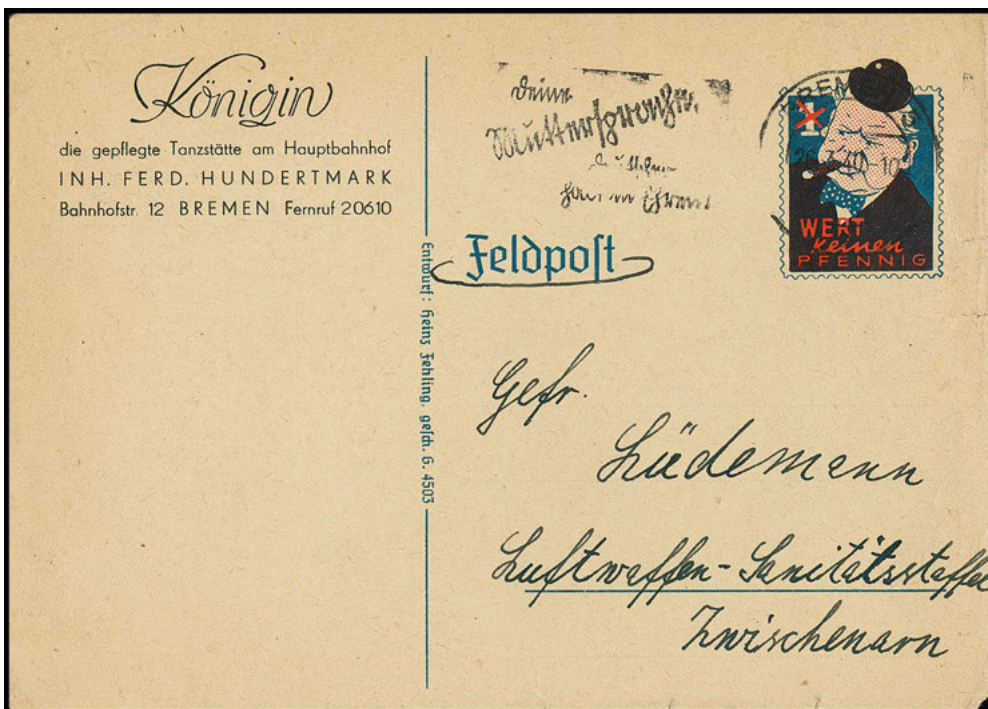 Königin
die gepflegte Tanzstätte am Hauptbahnhof
INH. FERD. HUNDERTMARK
Bahnhofstr. 12 BREMEN Fernruf 20610
Entwurf: Heinz Fehling, gesch. G. 4503
Deine
Muttersprache,
halt in Ehren
BREMEN
1
WERT
keinen
PFENNIG
Feldpost
Gefr.
Lüdemann
Luftwaffen-Sanitätsstaffel